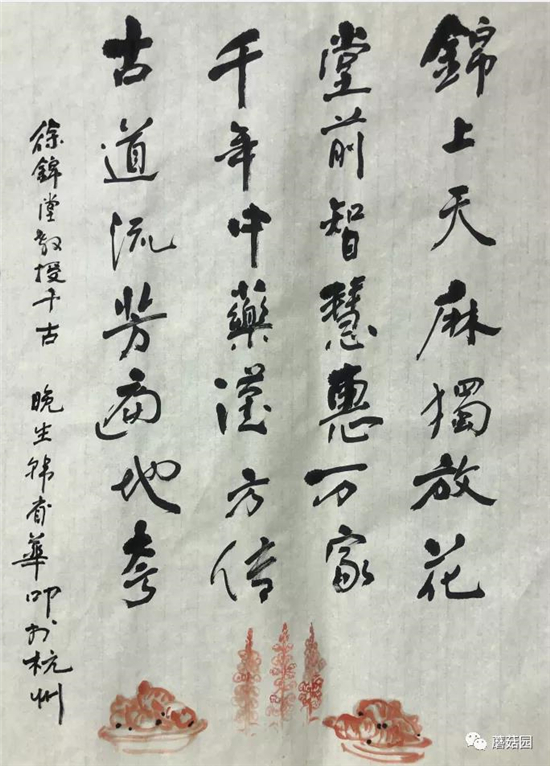 錦上天麻獨放花
堂前智慧惠万家
千年中藥漢方传
古道流芳遍地夸
徐錦堂教授千古
晚生韩省華叩于杭州
蘑菇园